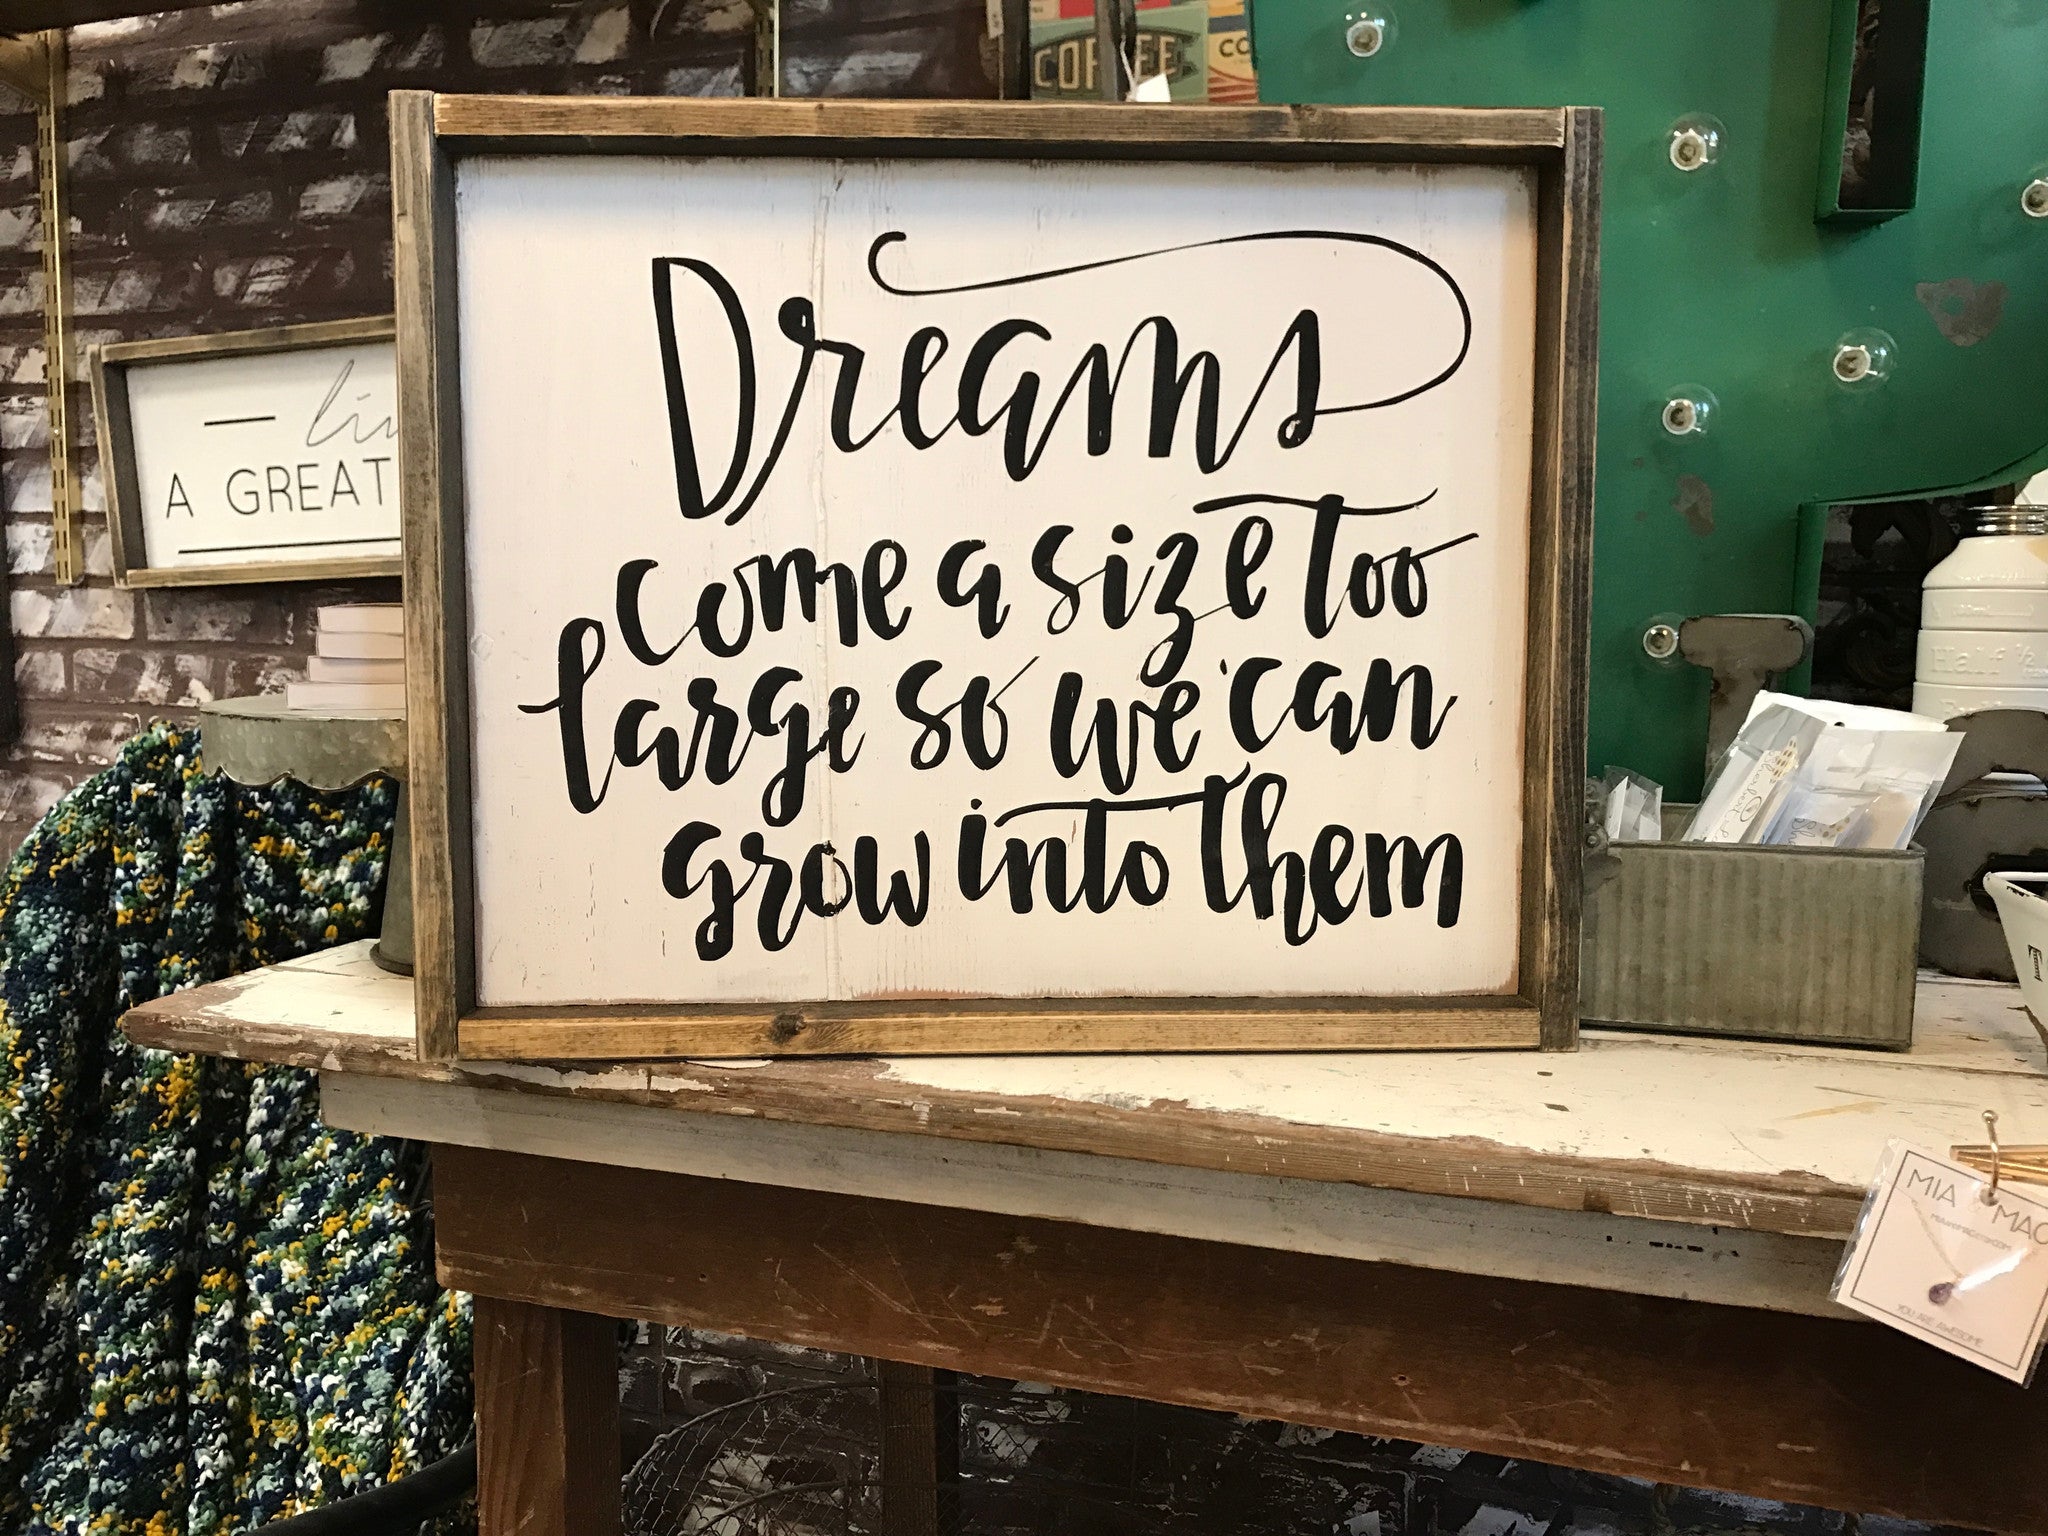 COFFEE
CO
Dreams
come a size too
large so we can
grow into them
A GREAT
Half 1/2
MIA
MAC
YOU ARE AWESOME